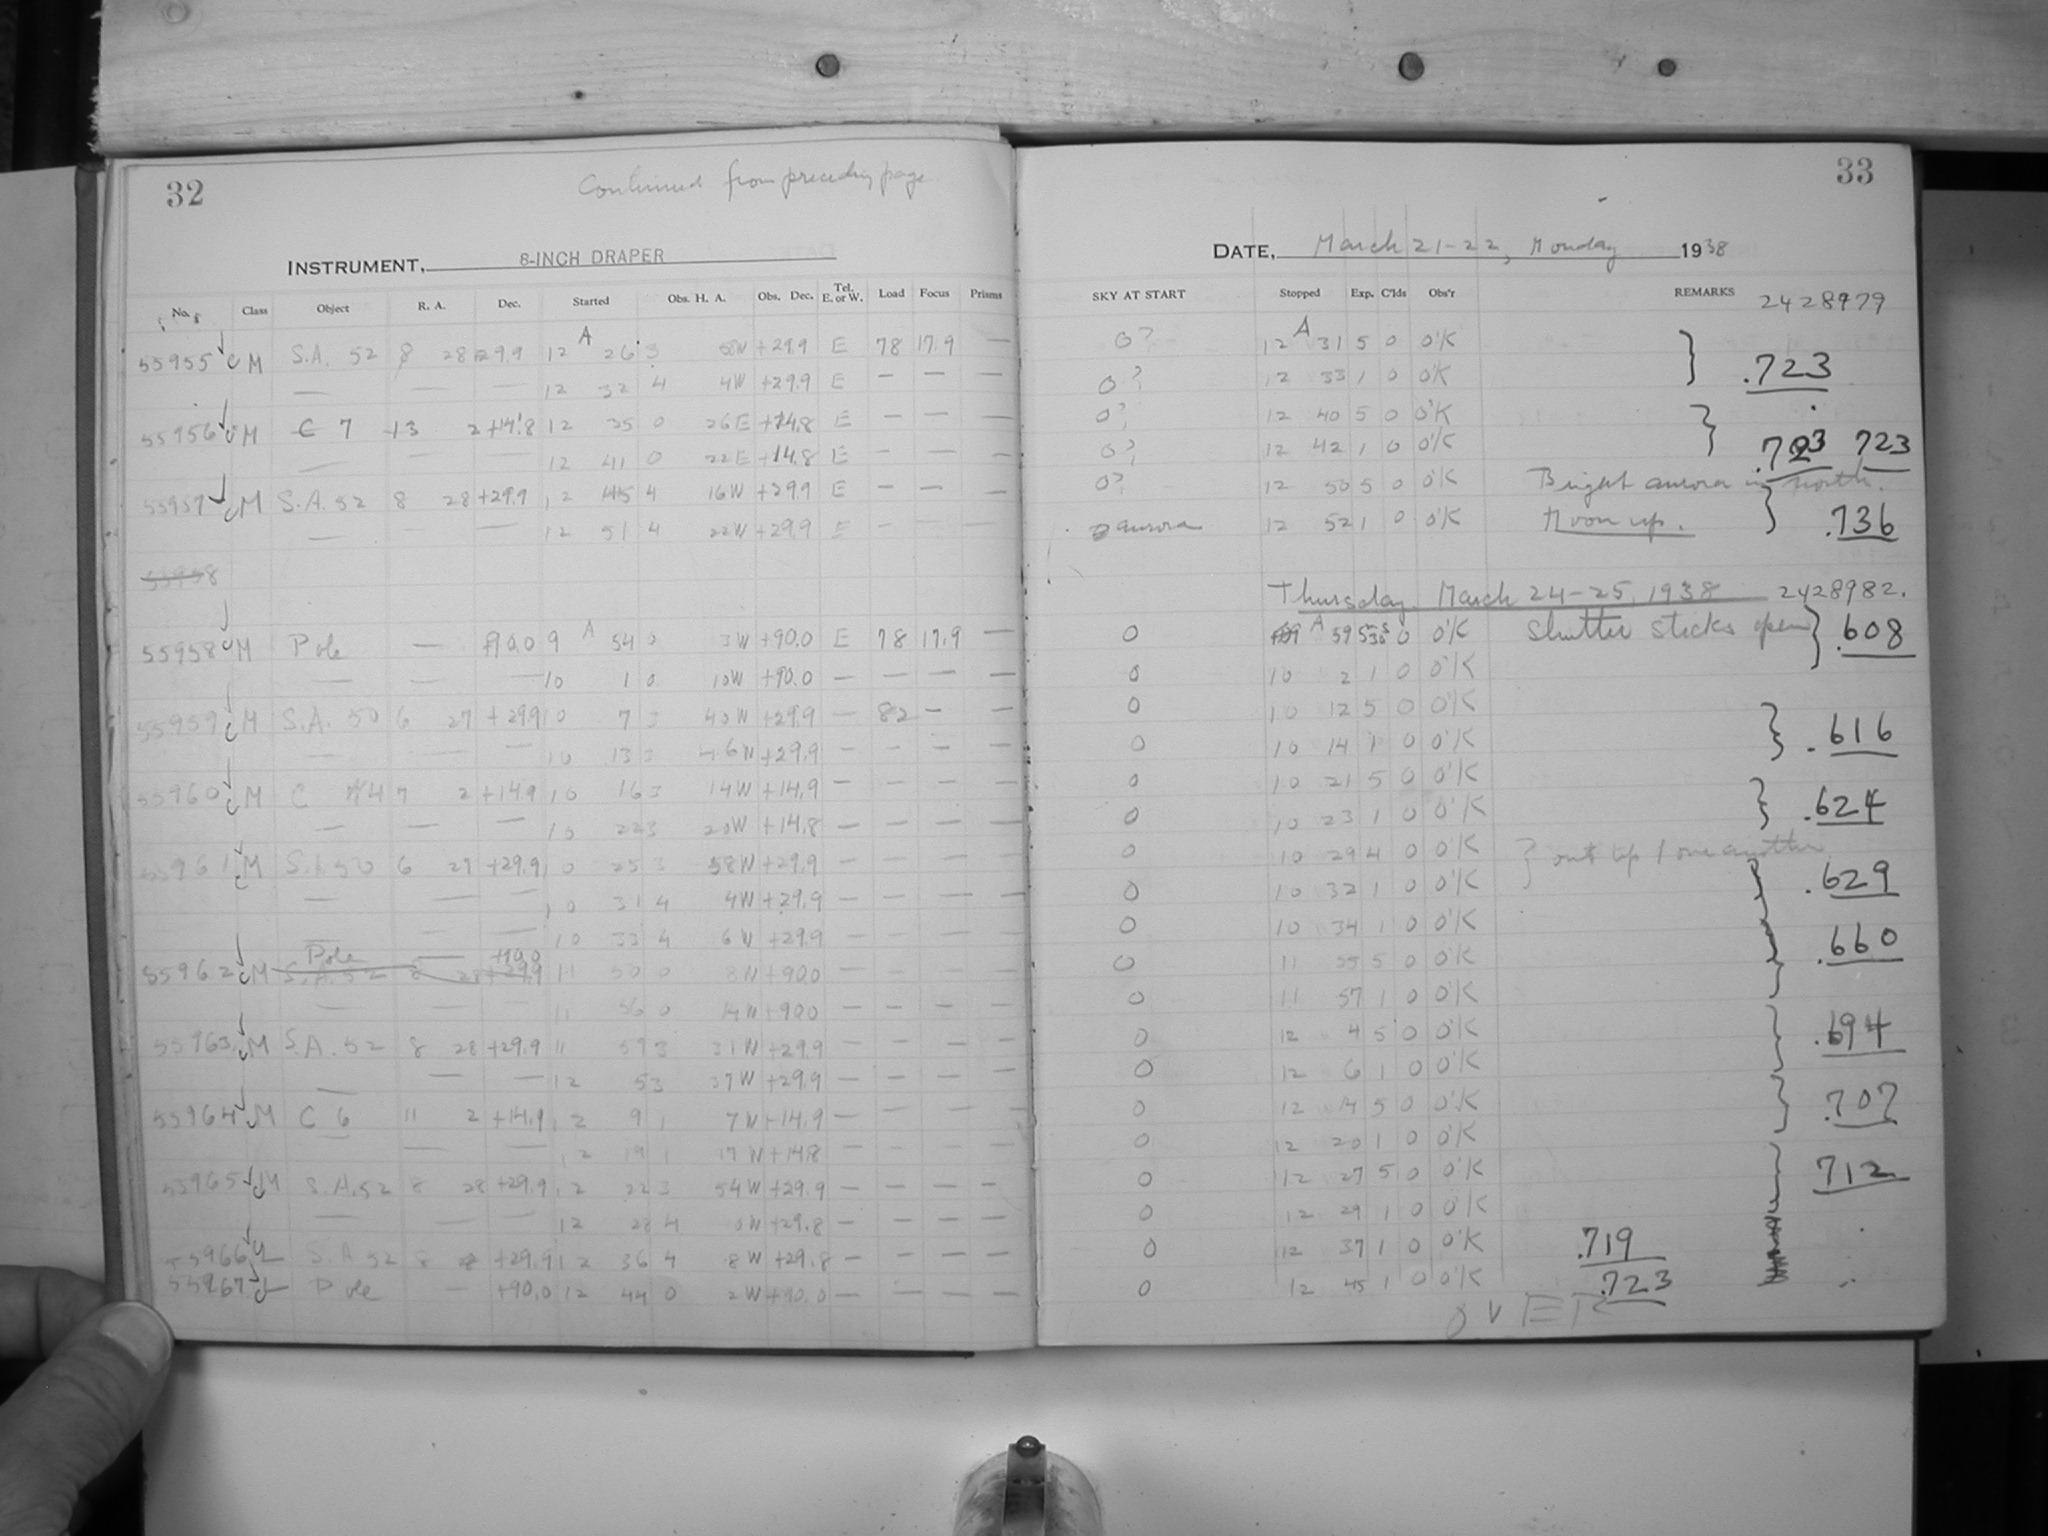 32
Continued from preceding page
INSTRUMENT, 8-INCH DRAPER
No. Class Object R. A. Dec. Started Obs. H. A. Obs. Dec. Tel. E. or W. Load Focus Prisms
55955 M S.A. 52 8 28 +29.9 12 A 26 3 +29.9 E 78 17.9 —
— — — 12 32 4 4W +29.9 E — — —
55956 M C 7 13 2 +14.8 12 35 0 26E +14.8 E — — —
— 12 41 0 22E +14.8 E — — —
55957 M S.A. 52 8 28 +29.9 12 45 4 16W +29.9 E — — —
— — — 12 51 4 22W +29.9 E — — —
55958
55958 M Pole — +90.0 9 A 54 0 3W +90.0 E 78 17.9 —
— — 10 1 0 10W +90.0 — — — —
55959 M S.A. 50 6 27 +29.9 10 7 3 40W +29.9 — 82 — —
— — — 10 13 3 46W +29.9 — — — —
55960 M C 44 7 2 +14.9 10 16 3 14W +14.9 — — — —
— — — 10 22 3 20W +14.8 — — — —
55961 M S.A. 50 6 27 +29.9 10 25 3 58W +29.9 — — — —
— — — 10 31 4 4W +29.9 — — — —
— — 10 33 4 6W +29.9 — — — —
Pole — +90.0
55962 M S.A. 52 8 28 +29.9 11 50 0 8W +90.0 — — — —
— — — 11 56 0 14W +90.0 — — — —
55963 M S.A. 52 8 28 +29.9 11 59 3 31W +29.9 — — — —
— — — 12 5 3 37W +29.9 — — — —
55964 M C 6 11 2 +14.9 12 9 1 7W +14.9 — — — —
— — 12 19 1 17W +14.8 — — — —
55965 M S.A. 52 8 28 +29.9 12 22 3 54W +29.9 — — — —
— — — 12 28 4 0W +29.8 — — — —
55966 S.A. 52 8 +29.9 12 36 4 8W +29.8 — — — —
55967 Pole — +90.0 12 44 0 2W +90.0 — — — —
33
DATE, March 21-22, Monday 1938
SKY AT START Stopped Exp. C'lds Obs'r REMARKS 2428979
0? 12 A 31 5 0 O'K
0? 12 33 1 0 O'K .723
0? 12 40 5 0 O'K
0? 12 42 1 0 O'K .723 723
0? 12 50 5 0 O'K Bright aurora in north.
aurora 12 52 1 0 O'K Moon up. .736
Thursday March 24-25, 1938 2428982.
0 A 59 O'K Shutter sticks open .608
0 10 2 1 0 O'K
0 10 12 5 0 O'K
0 10 14 1 0 O'K .616
0 10 21 5 0 O'K
0 10 23 1 0 O'K .624
0 10 29 4 0 O'K
0 10 32 1 0 O'K .629
0 10 34 1 0 O'K
0 11 55 5 0 O'K .660
0 11 57 1 0 O'K
0 12 4 5 0 O'K .694
0 12 6 1 0 O'K
0 12 14 5 0 O'K .707
0 12 20 1 0 O'K
0 12 27 5 0 O'K 712
0 12 29 1 0 O'K
0 12 37 1 0 O'K .719
0 12 45 1 0 O'K .723
OVER